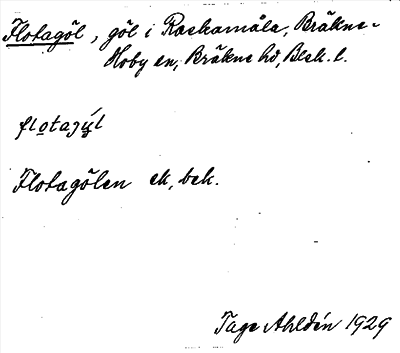 Flotagöl, göl i Roskamåla, Bräkne-
Hoby sn, Bräkne hd, Blek. l.
Flotagölen ek, bek.
Tage Ahldén 1929